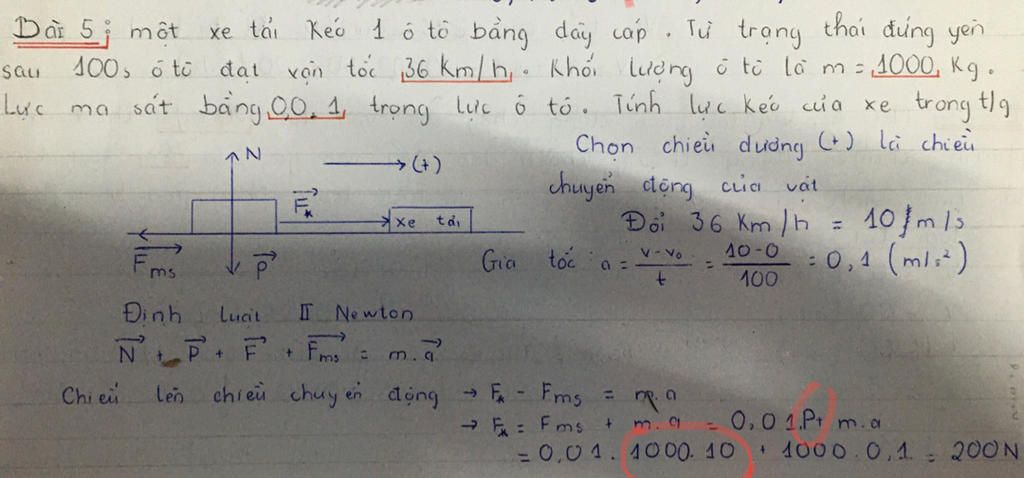 Bài 5: một xe tải kéo 1 ô tô bằng dây cáp. Từ trạng thái đứng yên
sau 100s ô tô đạt vận tốc 36 Km/h. Khối lượng ô tô là m = 1000 Kg.
Lực ma sát bằng 0,0.1 trọng lực ô tô. Tính lực kéo của xe trong t/g
N
(+)
Chọn chiều dương (+) là chiều
chuyển động của vật
F_k
xe tải
Đổi 36 Km/h = 10 m/s
F_ms
P
Gia tốc a = (v-v₀)/t = (10-0)/100 = 0,1 (m/s²)
Định luật II Newton
N + P + F + F_ms = m.a
Chiếu lên chiều chuyển động → F_k - F_ms = m.a
→ F_k = F_ms + m.a = 0,01.P + m.a
= 0,01. 1000.10 + 1000.0,1 = 200N